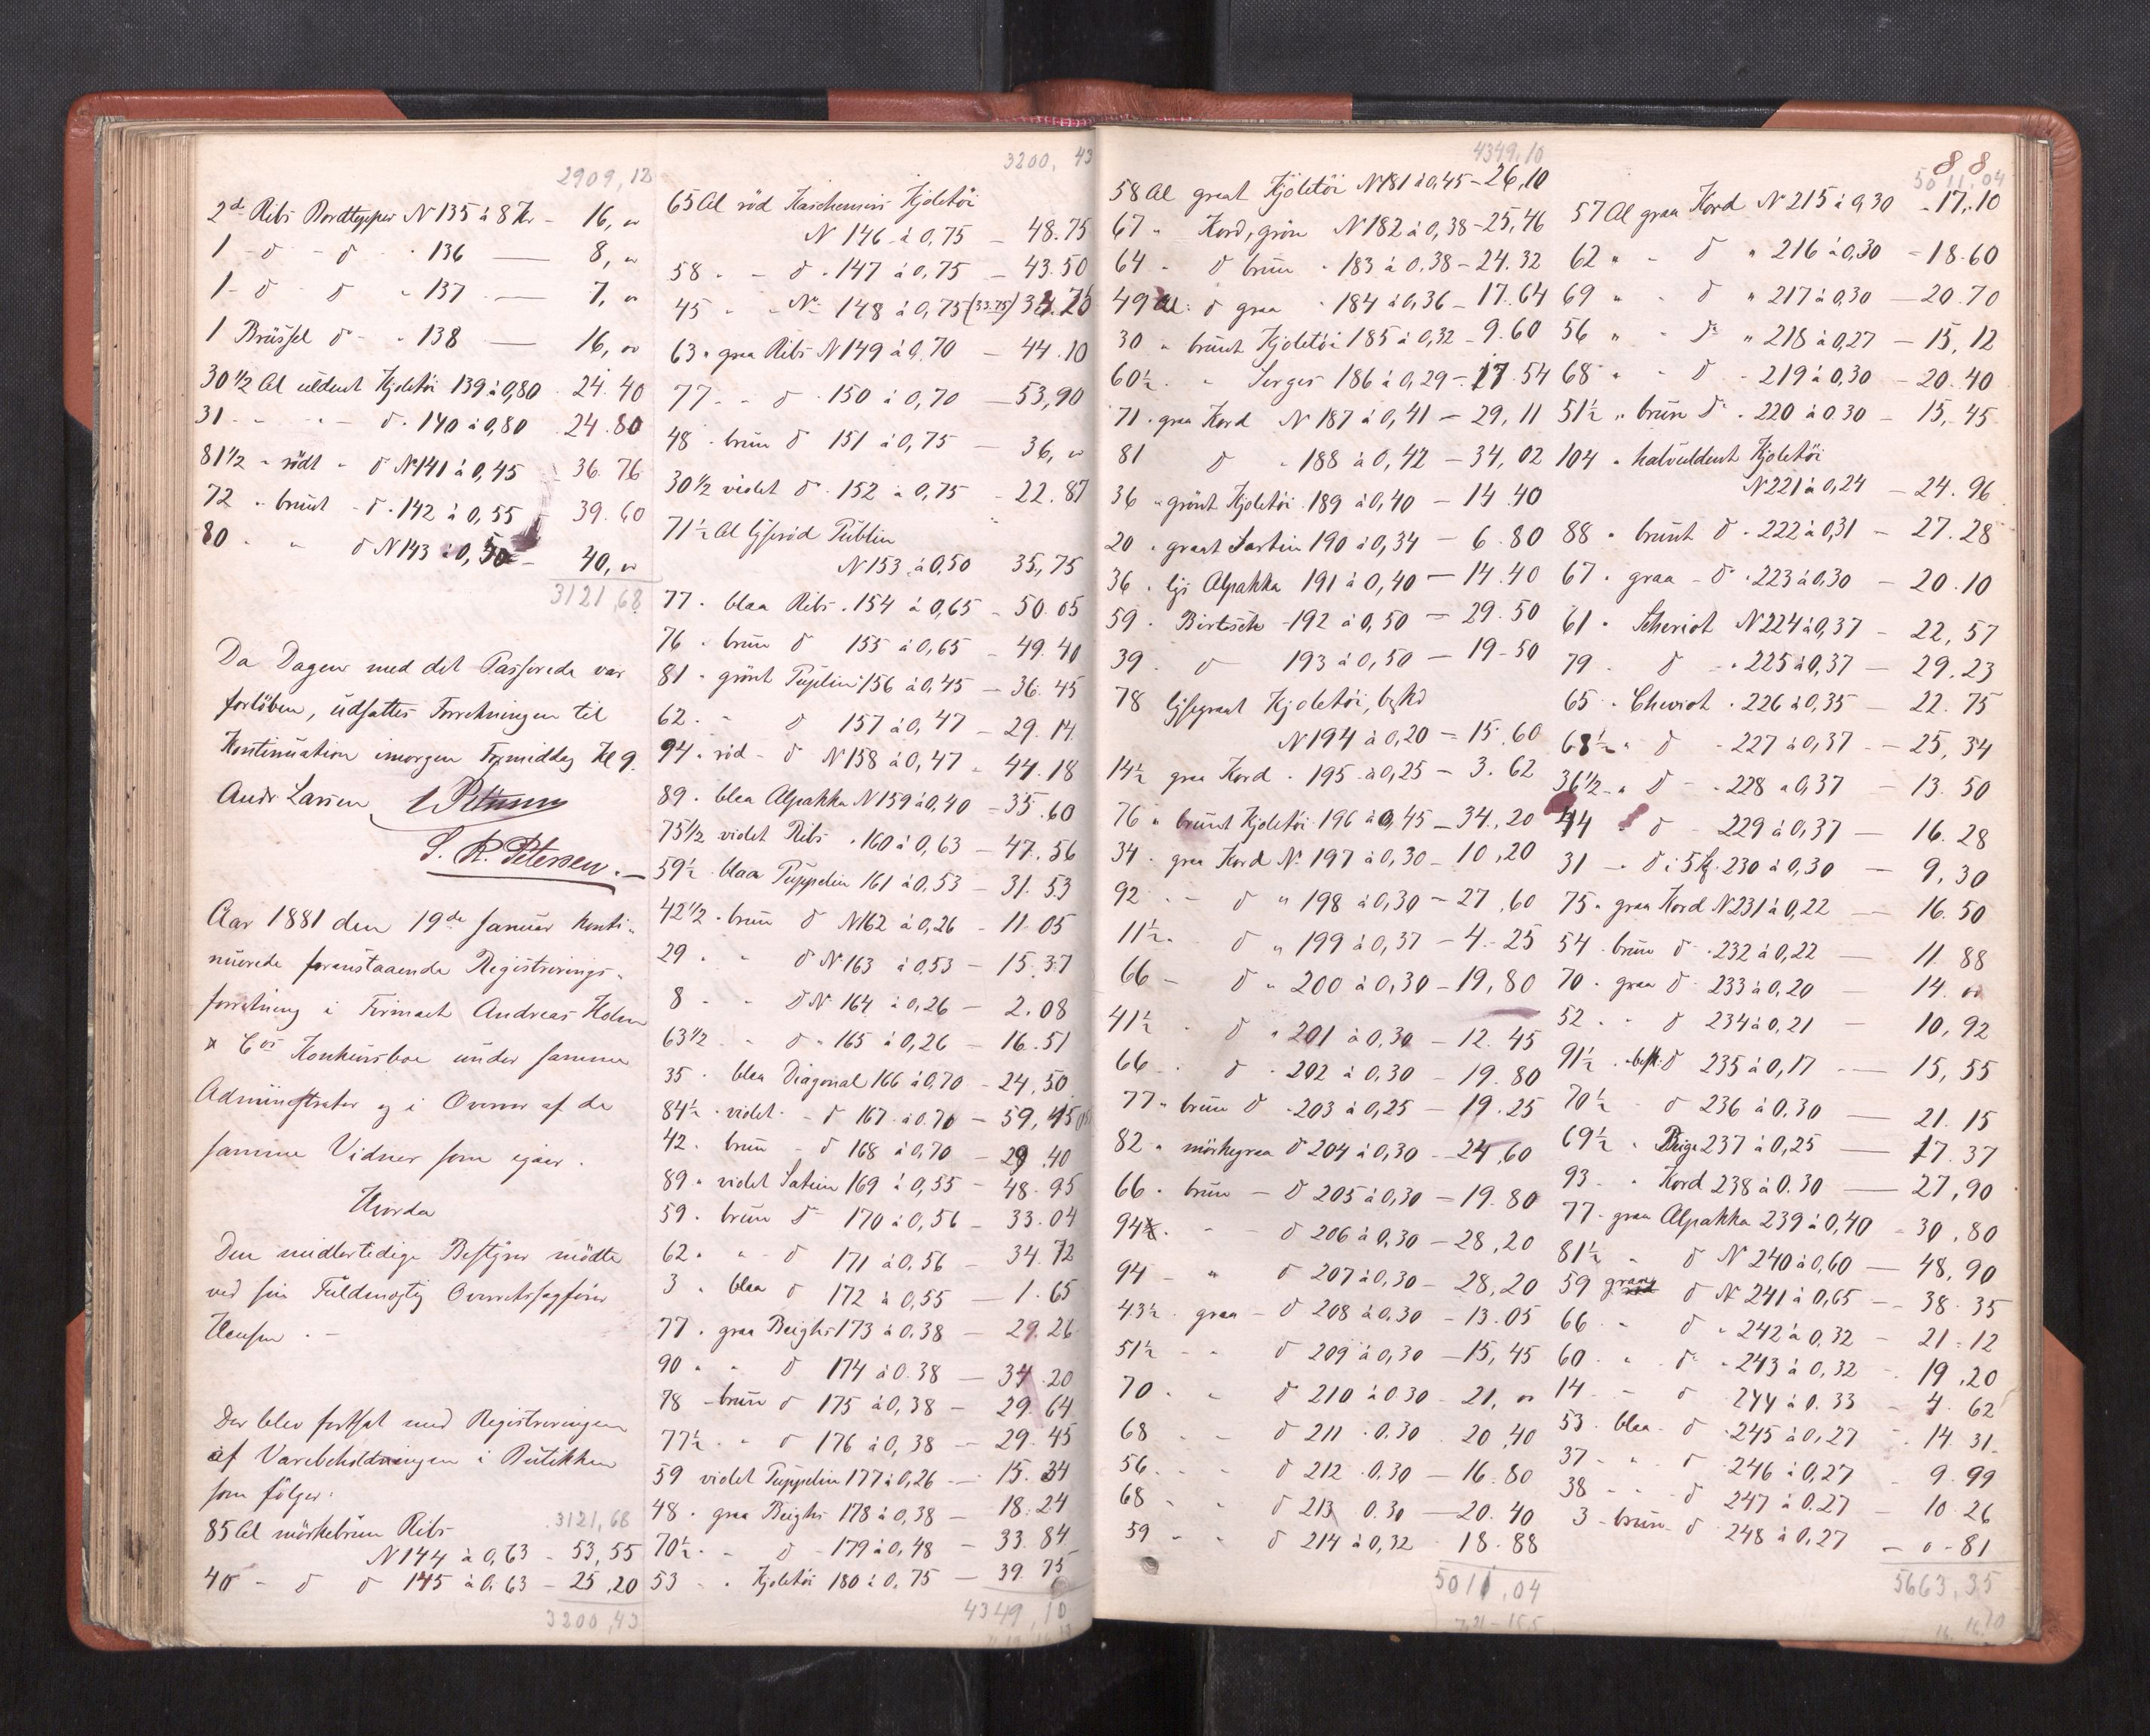 2909,12
2d Ribs Bordtepper N 135 à 8 Kr - 16, "
1 - d - d - 136 — 8, "
1 - d - d - 137 — 7, "
1 Brüssel d - 138 — 16, "
30 1/2 Al uldent Kjoletöi 139 à 0,80 24.40
31 - - - d. 140 à 0,80 24.80
81 1/2 - rödt - d N 141 à 0,45 36.76
72 - brunt - d. 142 à 0,55 39.60
80 - " d N 143 à 0,50 - 40, "
3121,68
Da Dagen med det Passerede var
forlöben, udsattes Forretningen til
Kontinuation imorgen Formiddag Kl 9.
Andr Larsen
S. R. Petersen.
Aar 1881 den 19de Januar konti-
nuerede foranstaaende Registrerings-
forretning i Firmaet Andreas Holm
& Cos Konkursboe under samme
Administrator og i Overvær af de
samme Vidner som igaar.
Hvorda
Den midlertidige Bestyrer mödte
ved sin Fuldmægtig Overretssagförer
Hansen. -
Der blev fortsat med Registreringen
af Varebeholdningen i Butikken
som fölger:
3121,68
85 Al mörkebrun Ribs
N 144 à 0,63 - 53,55
40 - d d 145 à 0.63 - 25,20
3200,43
3200,43
65 Al röd Kaschemirs Kjoletöi
N 146 à 0,75 - 48.75
58 - - d. 147 à 0,75 - 43.50
45 - - N 148 à 0,75 (33.75) 34.20
63 " graa Ribs N 149 à 0,70 - 44.10
77 - - d. 150 à 0,70 - 53,90
48 - brun d 151 à 0,75 - 36, "
30 1/2 violet d. 152 à 0,75 - 22.87
71 1/2 Al lyseröd Püblin
N 153 à 0,50 35,75
77 - blaa Ribs. 154 à 0,65 - 50.05
76 - brun d 155 à 0,65 - 49.40
81 - grönt Püplin 156 à 0,45 - 36.45
62 - - d 157 à 0,47 - 29.14
94 - röd - d N 158 à 0,47 - 44.18
89 - blaa Alpakka N 159 à 0,40 - 35.60
75 1/2 violet Ribs - 160 à 0,63 - 47.56
59 1/2 blaa Püppelin 161 à 0,53 - 31.53
42 1/2 - brun d N 162 à 0,26 - 11.05
29 - - d N 163 à 0,53 - 15.37
8 - - d N 164 à 0,26 - 2.08
63 1/2 - d - 165 à 0,26 - 16.51
35 - blaa Diagonal 166 à 0,70 - 24,50
84 1/2 - violet - d 167 à 0.70 - 59,15
42 - brun - d 168 à 0,70 - 29.40
89 - violet Satein 169 à 0,55 - 48.95
59 - brun d 170 à 0,56 - 33.04
62 - " - d 171 à 0,56 - 34.72
3 - blaa d 172 à 0,55 - 1.65
77 - graa Beighs 173 à 0.38 - 29.26
90 - - d 174 à 0.38 - 34.20
78 - brun d 175 à 0,38 - 29.64
77 1/2 - - d 176 à 0,38 - 29.45
59 violet Püppelin 177 à 0,26 - 15.34
48 - graa Beighs 178 à 0,38 - 18.24
70 1/2 - - d - 179 à 0,48 - 33.84
53 - - Kjoletöi 180 à 0,75 - 39.75
4349,10
88
4349,10
58 Al graat Kjöletöi N 181 à 0,45 - 26,10
67 " Kord, grön N 182 à 0,38 - 25,46
64 - d brun - 183 à 0.38 - 24.32
49 Al: d graa - 184 à 0,36 - 17.64
30 - brunt Kjoletöi 185 à 0,32 - 9.60
60 1/2 - " Serges 186 à 0,29 - 17.54
71 - graa Kord N 187 à 0,41 - 29,11
81 d - 188 à 0,42 - 34,02
36 - grönt Kjoletöi 189 à 0,40 - 14.40
20 - graat Lastin 190 à 0,34 - 6.80
36 - lys Alpakka 191 à 0,40 - 14.40
59 - Birtsch - 192 à 0,50 - 29.50
39 - d 193 à 0,50 - 19-50
78 lysegraat Kjoletöi, beskd
N 194 à 0,20 - 15.60
14 1/2 graa Kord - 195 à 0,25 - 3.62
76 " brunt Kjoletöi 196 à 0,45 - 34,20
34 - graa Kord N 197 à 0,30 - 10,20
92 - - d " 198 à 0,30 - 27,60
11 1/2 - d " 199 à 0,37 - 4-25
66 - d " 200 à 0,30 - 19,80
41 1/2 - d " 201 à 0,30 - 12.45
66 - - d - 202 à 0,30 - 19.80
77 " brun d - 203 à 0,25 - 19.25
82 - mörkegraa d 204 à 0,30 - 24,60
66 - brun - d 205 à 0,30 - 19.80
94 - - d 206 à 0.30 - 28,20
94 - " d 207 à 0,30 - 28,20
43 1/2 - graa - d 208 à 0.30 - 13.05
51 1/2 - - d 209 à 0,30 - 15,45
70 - - d 210 à 0.30 - 21, "
68 - d 211 - 0.30 20,40
56 - - d 212 - 0.30 - 16.80
68 - - d 213 0.30 - 20.40
59 - - d 214 à 0,32 - 18.88
5011,04
5011.04
57 Al graa Kord N 215 à 0,30 - 17,10
62 " - d " 216 à 0,30 - 18.60
69 " - d " 217 à 0,30 - 20.70
56 " - d " 218 à 0,27 - 15,12
68 " - d - 219 à 0,30 - 20.40
51 1/2 " brun d - 220 à 0 30 - 15,45
104 - halvuldent Kjoletöi
N 221 à 0,24 - 24.96
88 - brunt d - 222 à 0,31 - 27.28
67 - graa - d - 223 à 0,30 - 20.10
61 - Scheviot N 224 à 0,37 - 22,57
79 - d - 225 à 0,37 - 29,23
65 - Cheviot - 226 à 0,35 - 22.75
68 1/2 " d - 227 à 0,37 - 25,34
36 1/2 - " d - 228 à 0,37 - 13.50
44 - d - 229 à 0,37 - 16.28
31 - d i 5 st. 230 à 0,30 - 9,30
75 " graa Kord N 231 à 0,22 - 16.50
54 - brun d - 232 à 0,22 - 11.88
70 - graa d 233 à 0,20 - 14. "
52 - - d 234 à 0,21 - 10,92
91 1/2 - besk. d 235 à 0,17 - 15,55
70 1/2 - d 236 à 0.30 - 21.15
69 1/2 " Beige 237 à 0,25 - 17.37
93 - - Kord 238 à 0.30 - 27,90
77 - graa Alpakka 239 à 0,40 - 30,80
81 1/2 - d N 240 à 0,60 - 48,90
59 graa d N 241 à 0,65 - 38.35
66 - d - 242 à 0,32 - 21-12
60 - - d - 243 à 0,32 - 19,20
14 - - d 244 à 0.33 - 4.62
53 - blaa - d - 245 à 0,27 - 14.31
37 - - d 246 à 0,27 - 9.99
38 - - d 247 à 0.27 - 10.26
3 - brun - d 248 à 0,27 - 0-81
5663,35